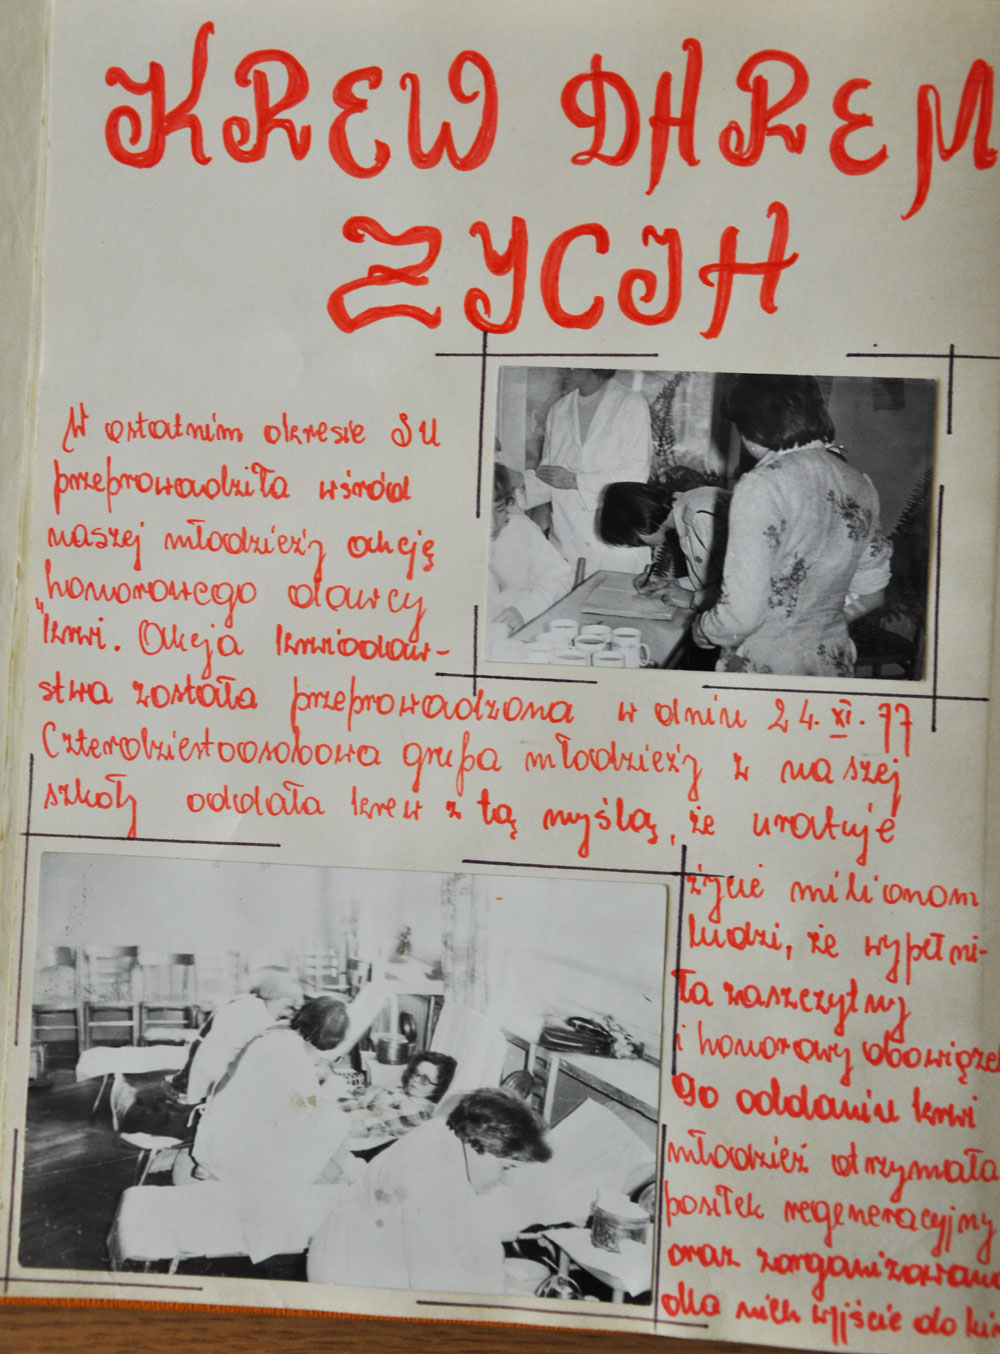 KREW DAREM
ŻYCIA
W ostatnim okresie SU
przeprowadziła wśród
naszej młodzieży akcję
"honorowego dawcy
krwi. Akcja krwiodaw-
stwa została przeprowadzona w dniu 24.XI.77
Czterdziestoosobowa grupa młodzieży z naszej
szkoły oddała krew z tą myślą, że uratuje
życie milionom
ludzi, że wypełni-
ła zaszczytny
i honorowy obowiązek
Po oddaniu krwi
młodzież otrzymała
posiłek regeneracyjny
oraz zorganizowano
dla nich wyjście do kin